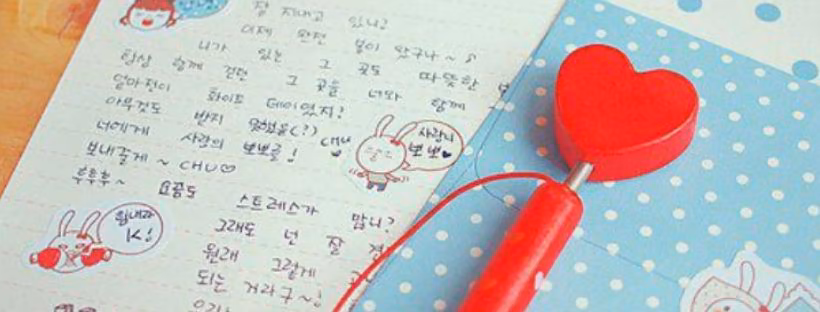 잘 지내고 있니?
이제 완전 봄이 왔구나~
니가 있는 그 곳도 따뜻한
항상 함께 걷던 그 곳을 너와 함께
얼마전이 화이트 데이였지?
아무것도 받지 못했을(?)
너에게 사랑의 뽀뽀를! CHU
보내줄게~ CHU♡
후후후~ 요즘도 스트레스가 많니?
그래도 넌 잘
원래 그렇게
되는 거라구~!
사랑의
뽀뽀♥
힘내라